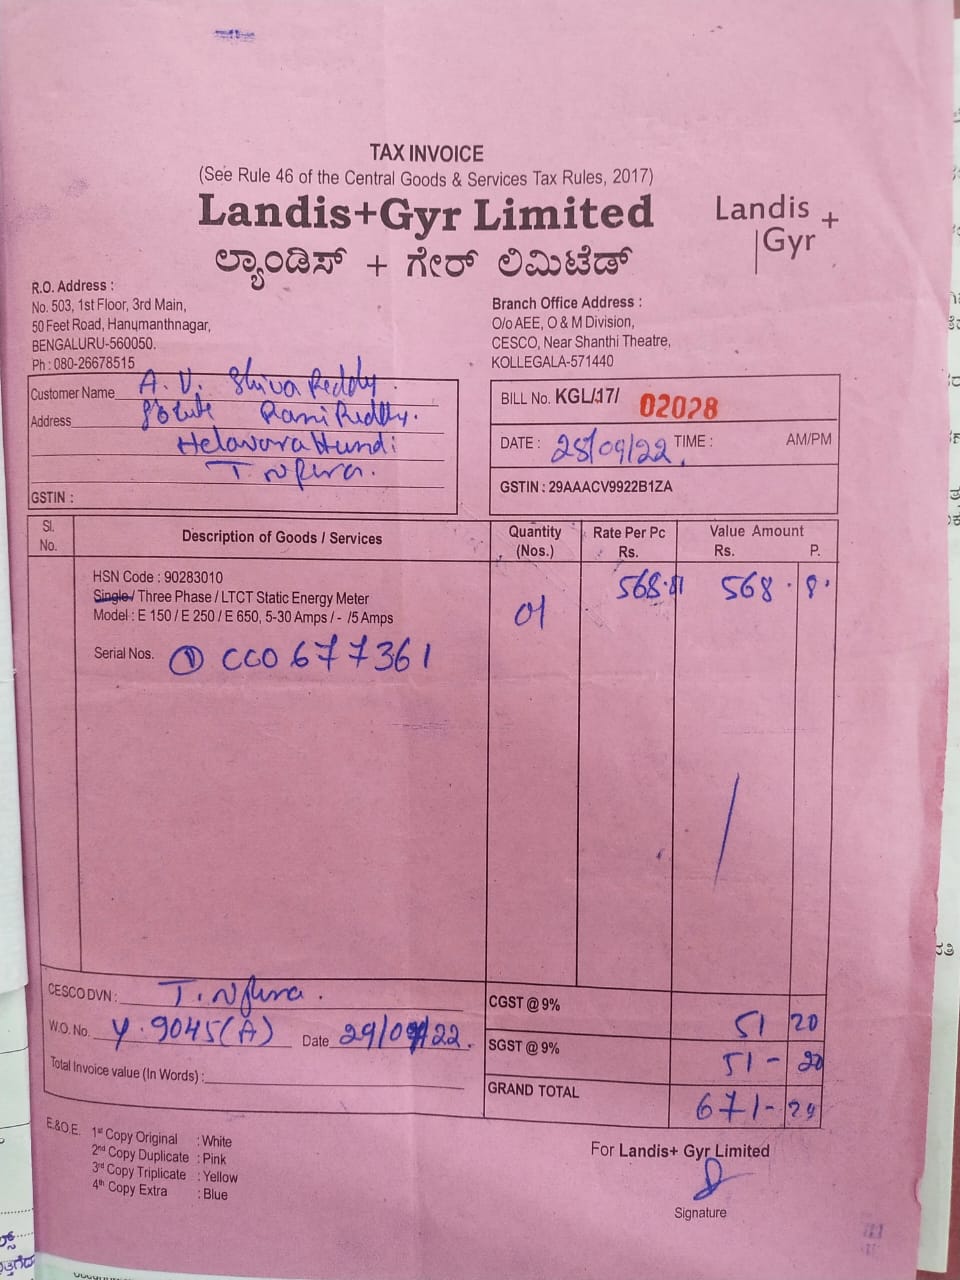 TAX INVOICE
(See Rule 46 of the Central Goods & Services Tax Rules, 2017)
Landis+Gyr Limited
Landis +
Gyr
ಲ್ಯಾಂಡಿಸ್ + ಗೇರ್ ಲಿಮಿಟೆಡ್
R.O. Address :
No. 503, 1st Floor, 3rd Main,
50 Feet Road, Hanumanthnagar,
BENGALURU-560050.
Ph : 080-26678515
Branch Office Address :
O/o AEE, O & M Division,
CESCO, Near Shanthi Theatre,
KOLLEGALA-571440
Customer Name A. V. Shiva Reddy.
Address Rami Reddy.
Helavara Hundi
T. N Pura.
GSTIN :
BILL No. KGL/17/ 02028
DATE : 28/09/22 TIME : AM/PM
GSTIN : 29AAACV9922B1ZA
Sl. No. Description of Goods / Services Quantity (Nos.) Rate Per Pc Rs. Value Amount Rs. P.
HSN Code : 90283010
Single / Three Phase / LTCT Static Energy Meter
Model : E 150 / E 250 / E 650, 5-30 Amps / - /5 Amps
01 568.81 568. 8.
Serial Nos. ① CC0677361
CESCO DVN : T. N Pura.
W.O. No. Y. 9045(A) Date 29/09/22.
Total Invoice value (In Words) :
CGST @ 9% 51 20
SGST @ 9% 51 - 20
GRAND TOTAL 671-
E.&O.E.
1st Copy Original : White
2nd Copy Duplicate : Pink
3rd Copy Triplicate : Yellow
4th Copy Extra : Blue
For Landis+ Gyr Limited
Signature